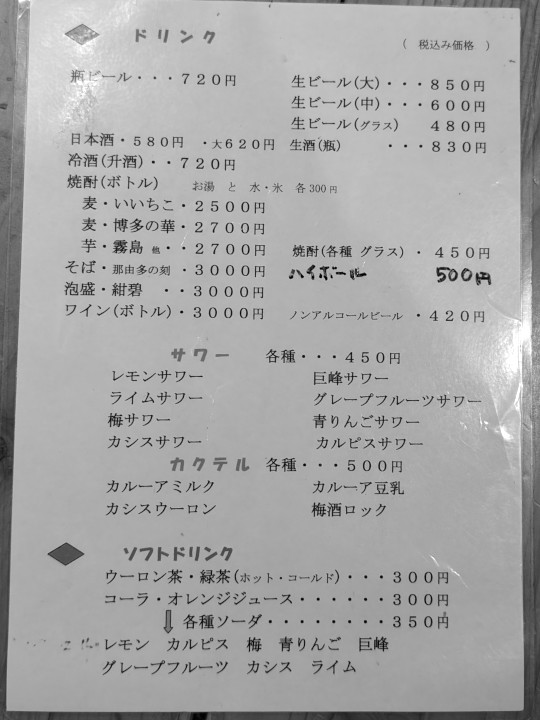 ドリンク （ 税込み価格 ）
瓶ビール・・・７２０円 生ビール(大)・・・８５０円
生ビール(中)・・・６００円
生ビール(グラス) ４８０円
日本酒・５８０円 ・大６２０円 生酒(瓶) ・・・８３０円
冷酒(升酒)・・７２０円
焼酎(ボトル) お湯 と 水・氷 各300円
麦・いいちこ・２５００円
麦・博多の華・２７００円
芋・霧島 他・・２７００円 焼酎(各種 グラス)・４５０円
そば・那由多の刻・３０００円 ハイボール 500円
泡盛・紺碧 ・・３０００円
ワイン(ボトル)・３０００円 ノンアルコールビール ・４２０円
サワー 各種・・・４５０円
レモンサワー 巨峰サワー
ライムサワー グレープフルーツサワー
梅サワー 青りんごサワー
カシスサワー カルピスサワー
カクテル 各種・・・５００円
カルーアミルク カルーア豆乳
カシスウーロン 梅酒ロック
ソフトドリンク
ウーロン茶・緑茶(ホット・コールド)・・・３００円
コーラ・オレンジジュース・・・・・・３００円
各種ソーダ・・・・・・・・３５０円
レモン カルピス 梅 青りんご 巨峰
グレープフルーツ カシス ライム